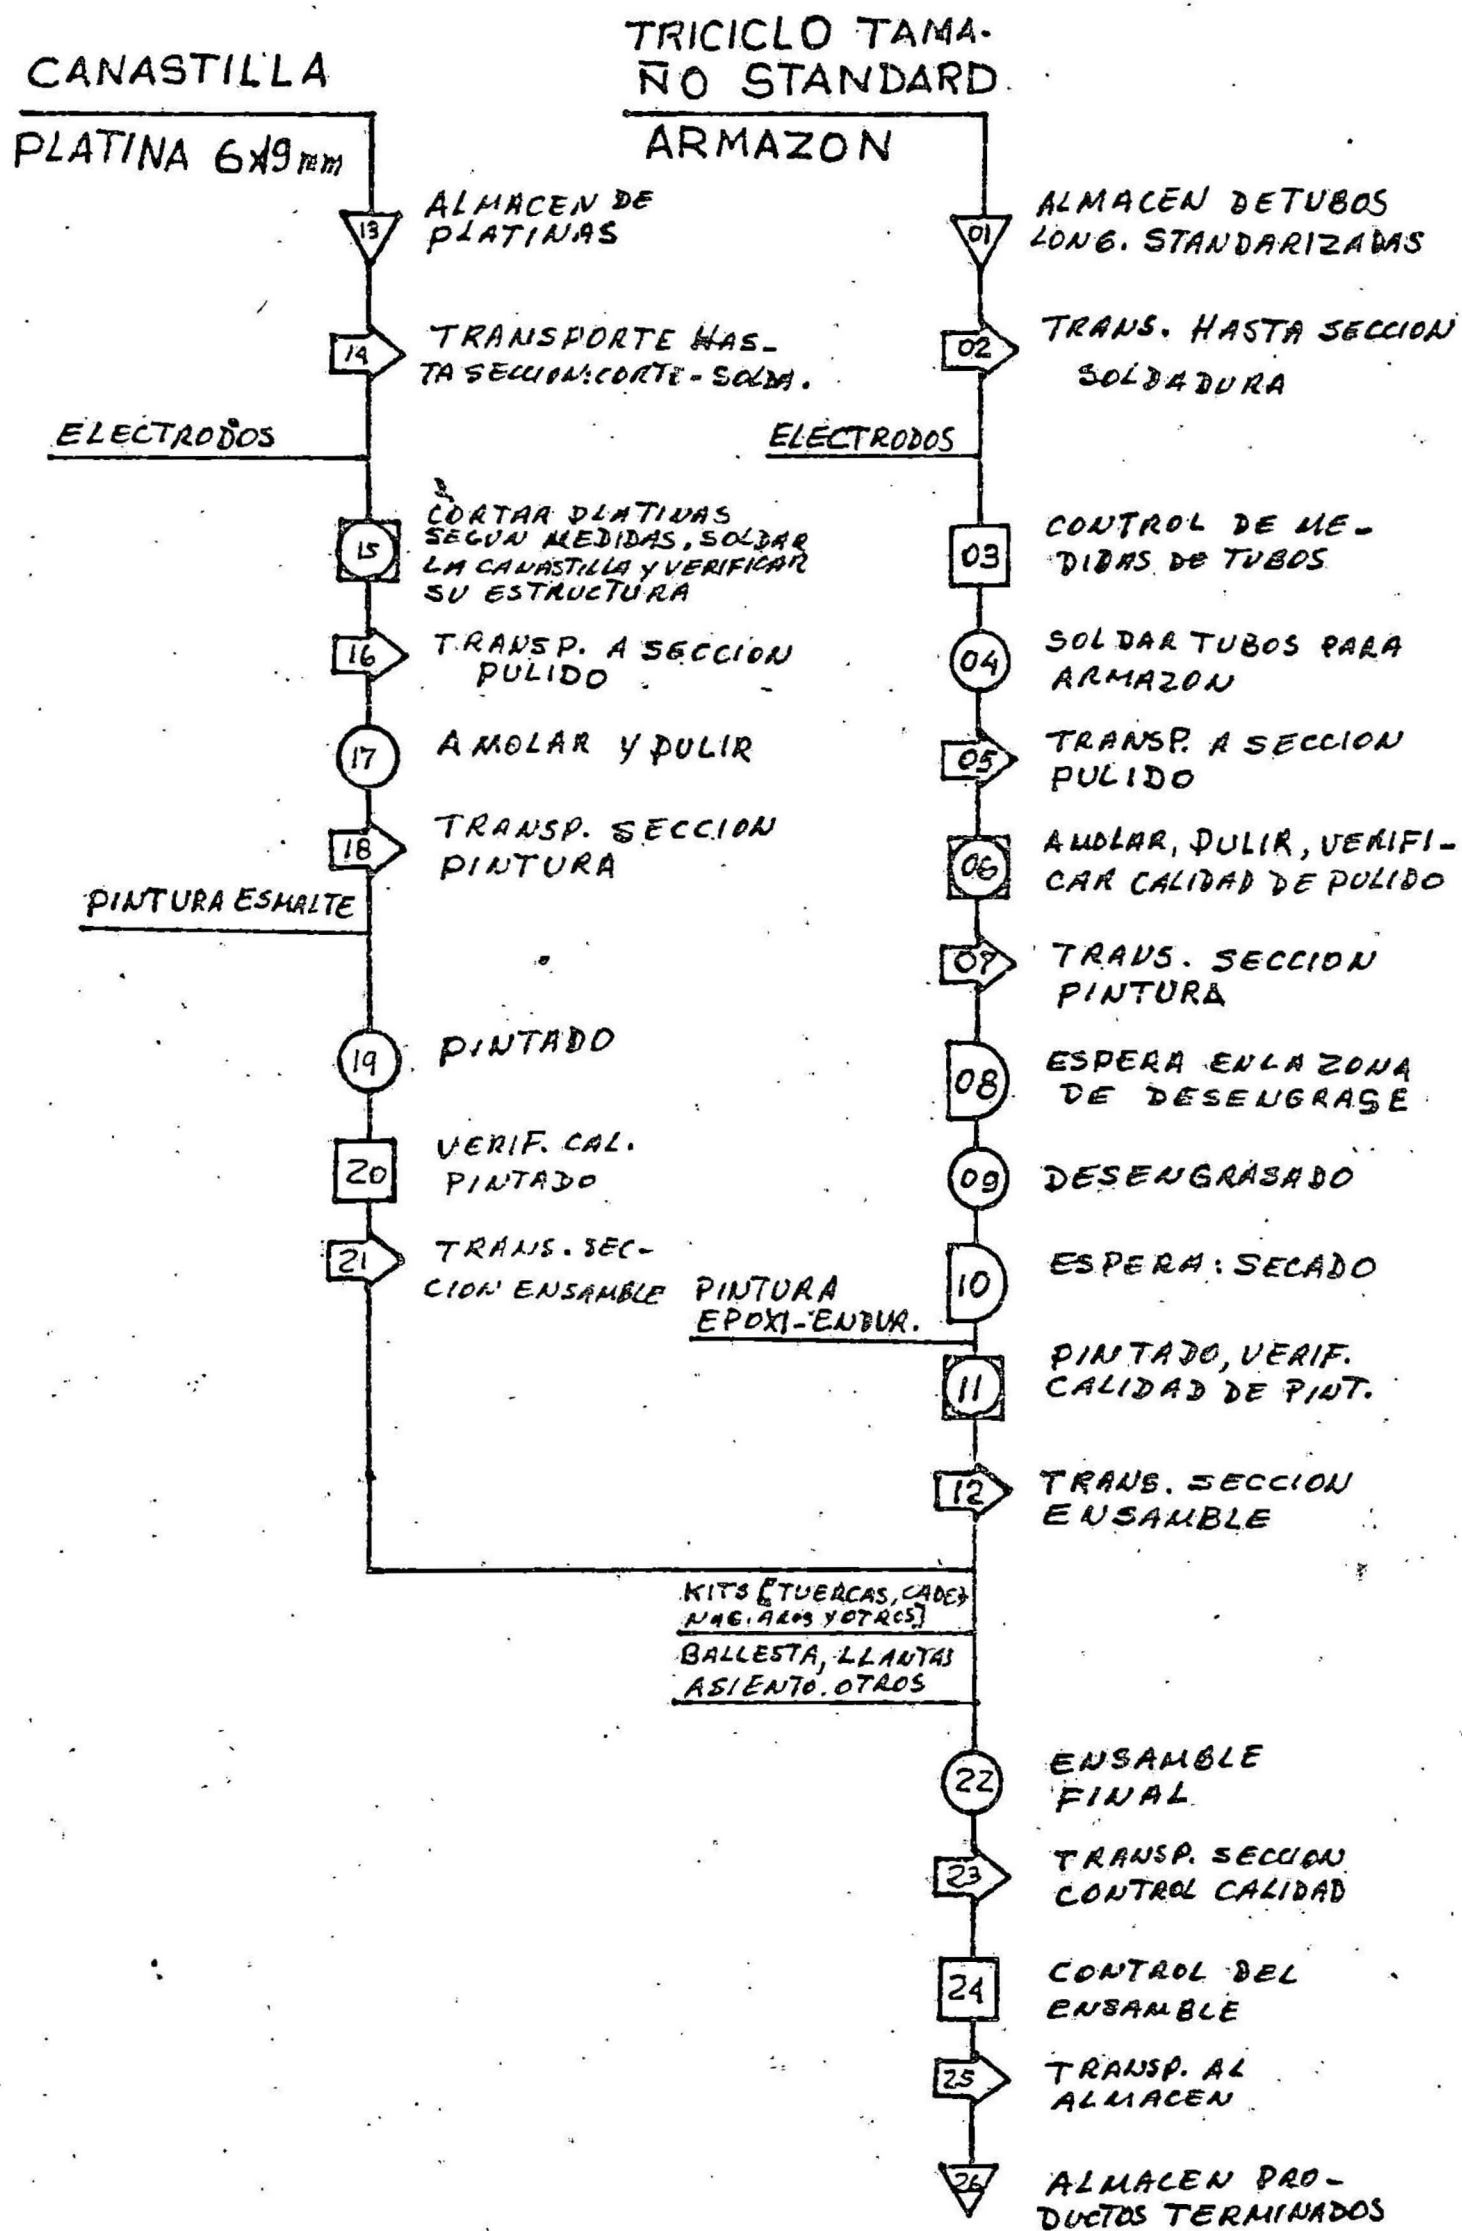 CANASTILLA
PLATINA 6x19mm
13
ALMACEN DE
PLATINAS
14
TRANSPORTE HAS-
TA SECCION:CORTE-SOLDA.
ELECTRODOS
15
CORTAR PLATINAS
SEGUN MEDIDAS, SOLDAR
LA CANASTILLA Y VERIFICAR
SU ESTRUCTURA
16
TRANSP. A SECCION
PULIDO
17
AMOLAR Y PULIR
18
TRANSP. SECCION
PINTURA
PINTURA ESMALTE
19
PINTADO
20
VERIF. CAL.
PINTADO
21
TRANS. SEC-
CION ENSAMBLE
TRICICLO TAMA-
ÑO STANDARD
ARMAZON
01
ALMACEN DE TUBOS
LONG. STANDARIZADAS
02
TRANS. HASTA SECCION
SOLDADURA
ELECTRODOS
03
CONTROL DE ME-
DIDAS DE TUBOS
04
SOLDAR TUBOS PARA
ARMAZON
05
TRANSP. A SECCION
PULIDO
06
AMOLAR, PULIR, VERIFI-
CAR CALIDAD DE PULIDO
07
TRANS. SECCION
PINTURA
08
ESPERA EN LA ZONA
DE DESENGRASE
09
DESENGRASADO
10
ESPERA: SECADO
PINTURA
EPOXI-ENDUR.
11
PINTADO, VERIF.
CALIDAD DE PINT.
12
TRANS. SECCION
ENSAMBLE
KITS [TUERCAS, CADE-
NAS. AROS Y OTROS]
BALLESTA, LLANTAS
ASIENTO. OTROS
22
ENSAMBLE
FINAL
23
TRANSP. SECCION
CONTROL CALIDAD
24
CONTROL DEL
ENSAMBLE
25
TRANSP. AL
ALMACEN
26
ALMACEN PRO-
DUCTOS TERMINADOS